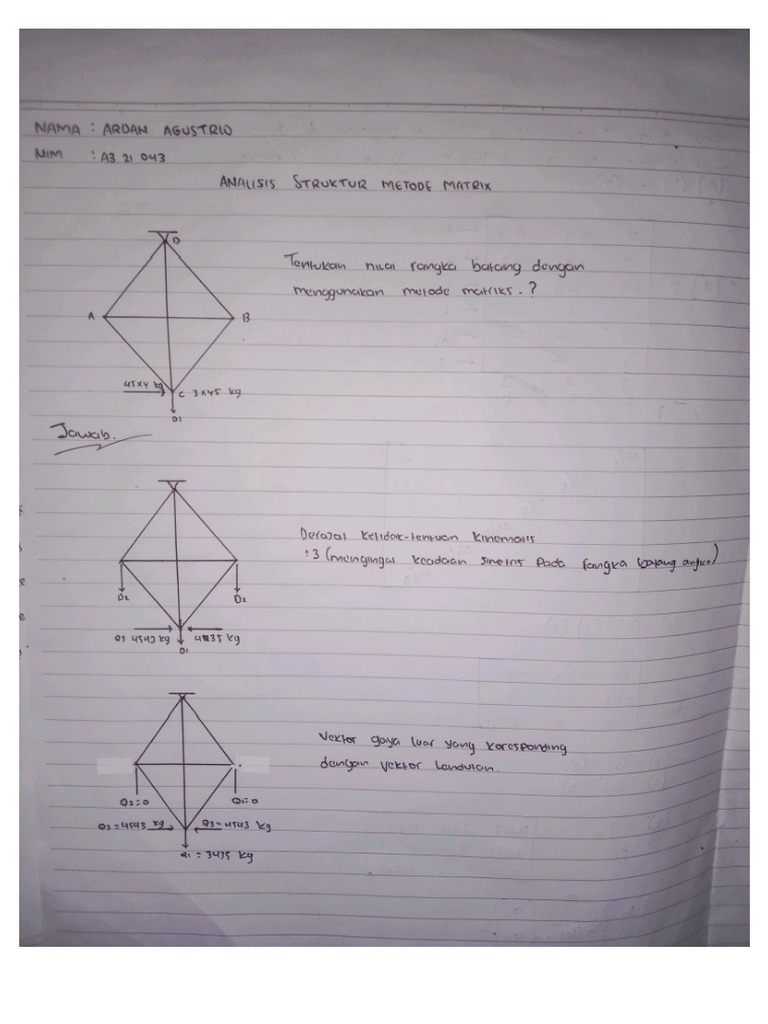 NAMA : ARDAN AGUSTRIO
NIM : A3 21 043
ANALISIS STRUKTUR METODE MATRIX
D
Tentukan nilai rangka batang dengan
menggunakan metode matriks. ?
A
B
45x4 kg
C 3x45 kg
D1
Jawab.
Derajat ketidak-tentuan kinematis
: 3 (mengingat keadaan simetris pada rangka batang
D2
D2
D3 4543 kg
kg
D1
Vektor gaya luar yang koresponding
dengan vektor lendutan.
Q2=0
Q2=4543 kg
Q3=4543 kg
Q1 = 3435 kg